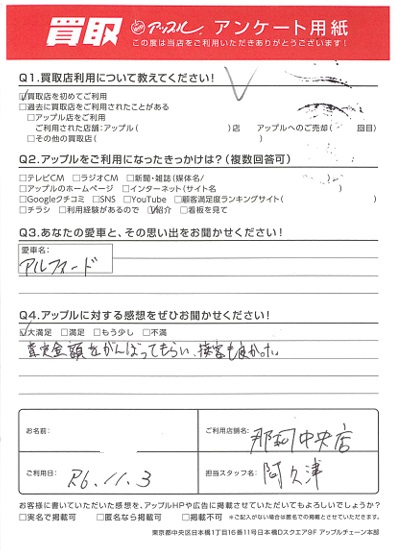 買取 アップル アンケート用紙
この度は当店をご利用いただきありがとうございます!
Q1.買取店利用について教えてください!
☑買取店を初めてご利用
□過去に買取店をご利用されたことがある
□アップル店をご利用
ご利用された店舗:アップル( )店 アップルへのご売却( 回目)
□その他の買取店( )
Q2.アップルをご利用になったきっかけは?(複数回答可)
□テレビCM □ラジオCM □新聞・雑誌(媒体名/
□アップルのホームページ □インターネット(サイト名 )
□Googleクチコミ □SNS □YouTube □顧客満足度ランキングサイト( )
□チラシ □利用経験があるので ☑紹介 □看板を見て
Q3.あなたの愛車と、その思い出をお聞かせください!
愛車名:
アルファード
Q4.アップルに対する感想をぜひお聞かせください!
☑大満足 □満足 □もう少し □不満
査定金額をがんばってもらい、接客も良かった。
お名前:
ご利用店舗名: 那珂中央店
ご利用日: R6.11.3
担当スタッフ名: 阿久津
お客様に書いていただいた感想を、アップルHPや広告に掲載させていただいてもよろしいでしょうか?
□実名で掲載可 □匿名なら掲載可 □掲載不可 ※ご記入がない場合は匿名での掲載とさせていただきます。
東京都中央区日本橋1丁目16番11号日本橋Dスクエア9F アップルチェーン本部